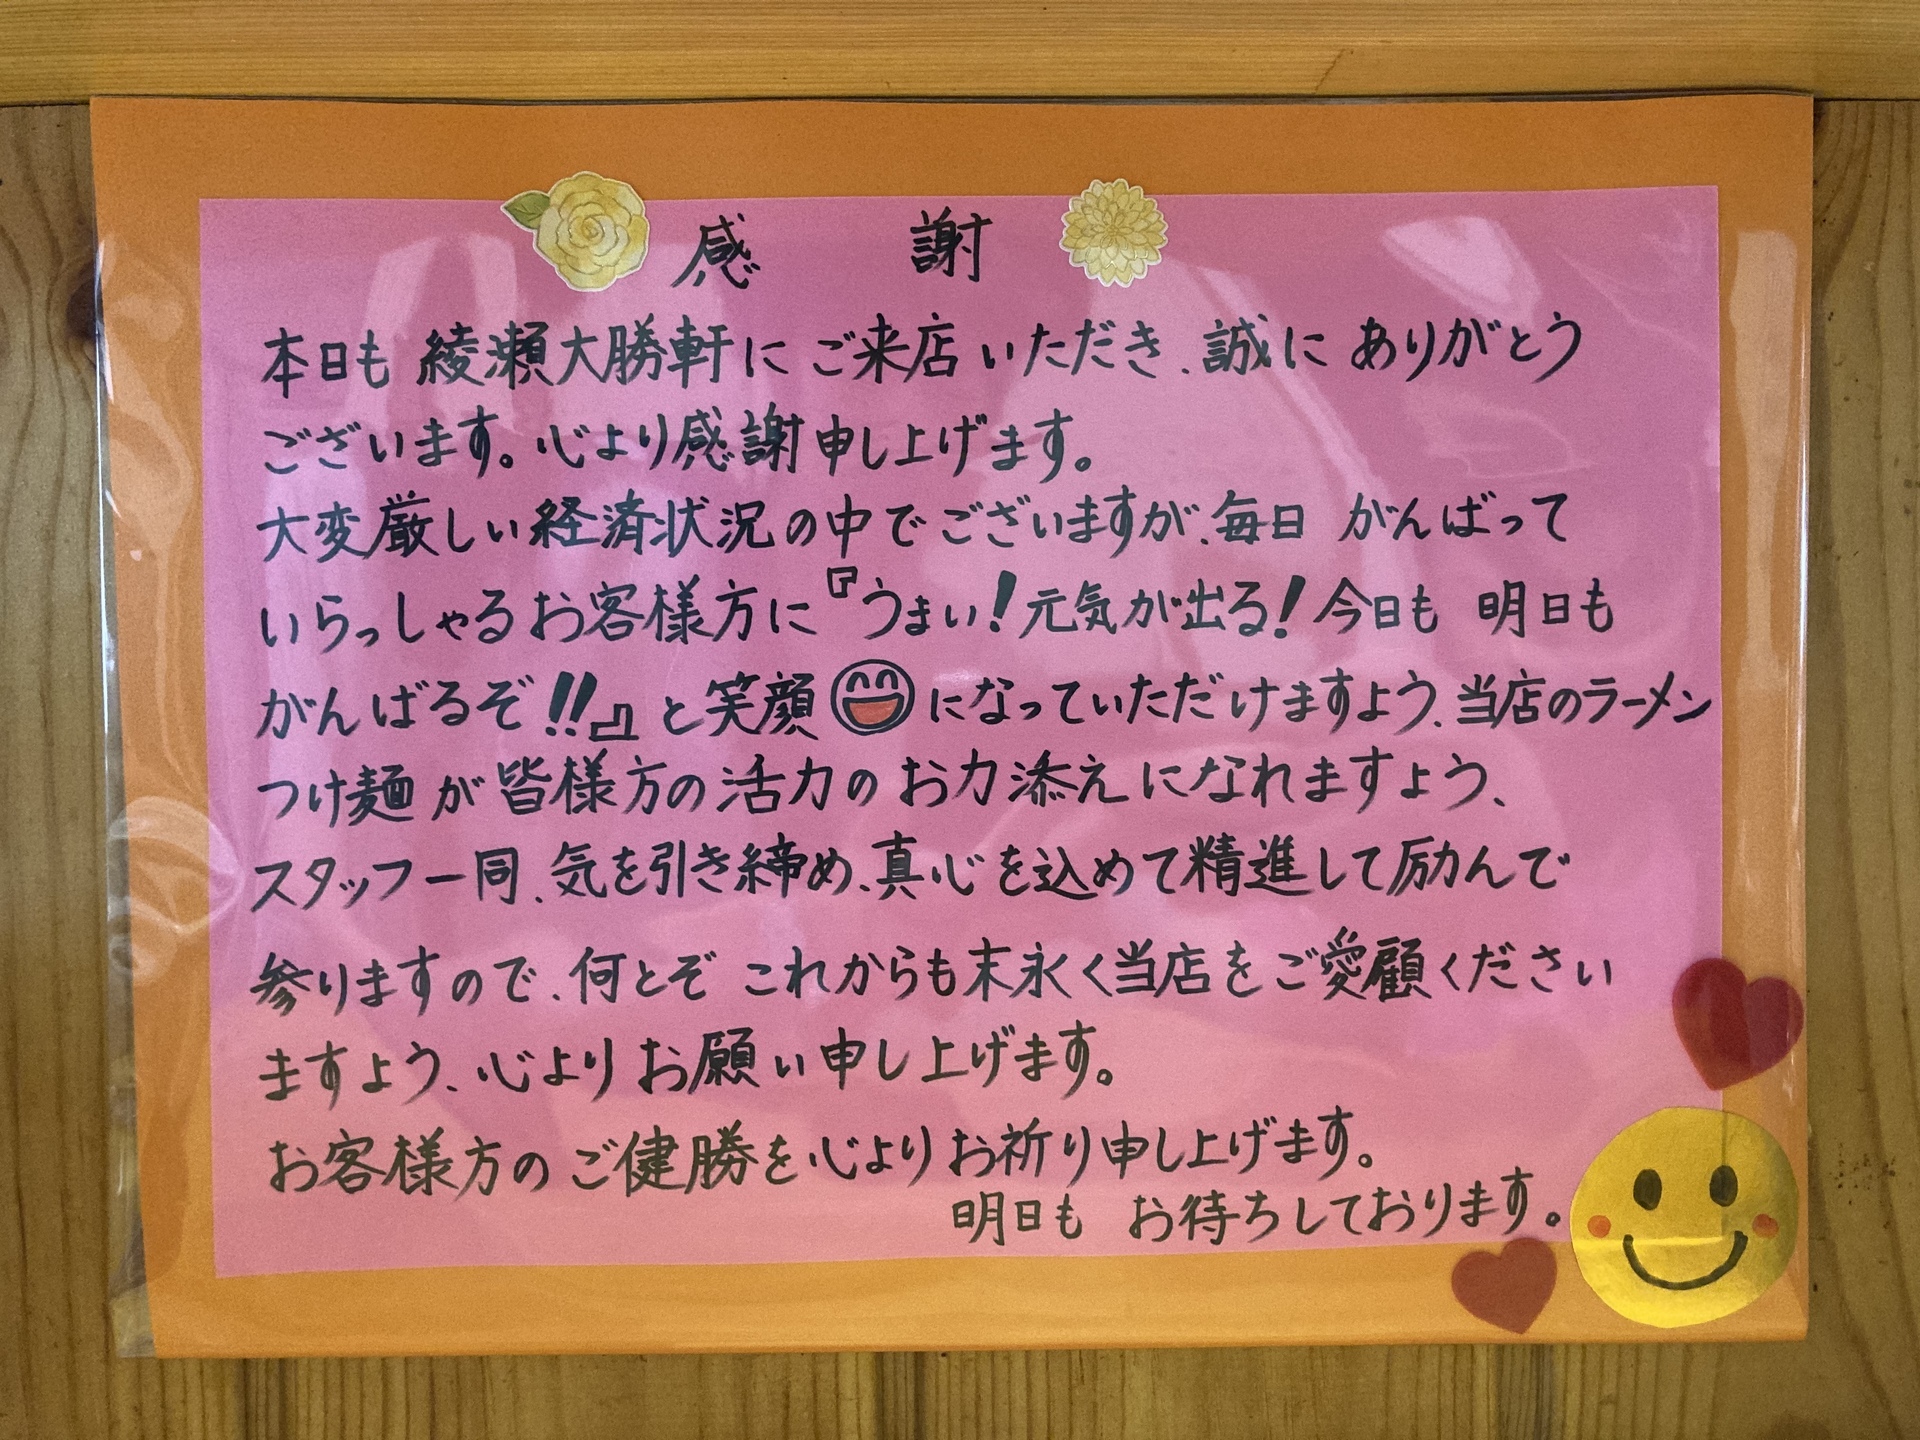 感謝
本日も 綾瀬大勝軒に ご来店 いただき、誠に ありがとう
ございます。心より感謝申し上げます。
大変厳しい経済状況の中でございますが、毎日 がんばって
いらっしゃるお客様方に『うまい！元気が出る！今日も 明日も
がんばるぞ!!』と笑顔😄になっていただけますよう、当店のラーメン
つけ麺が皆様方の活力のお力添えになれますよう、
スタッフ一同、気を引き締め、真心を込めて精進して励んで
参りますので、何とぞ これからも末永く当店をご愛顧ください
ますよう、心よりお願い申し上げます。
お客様方のご健勝を心よりお祈り申し上げます。
明日も お待ちしております。